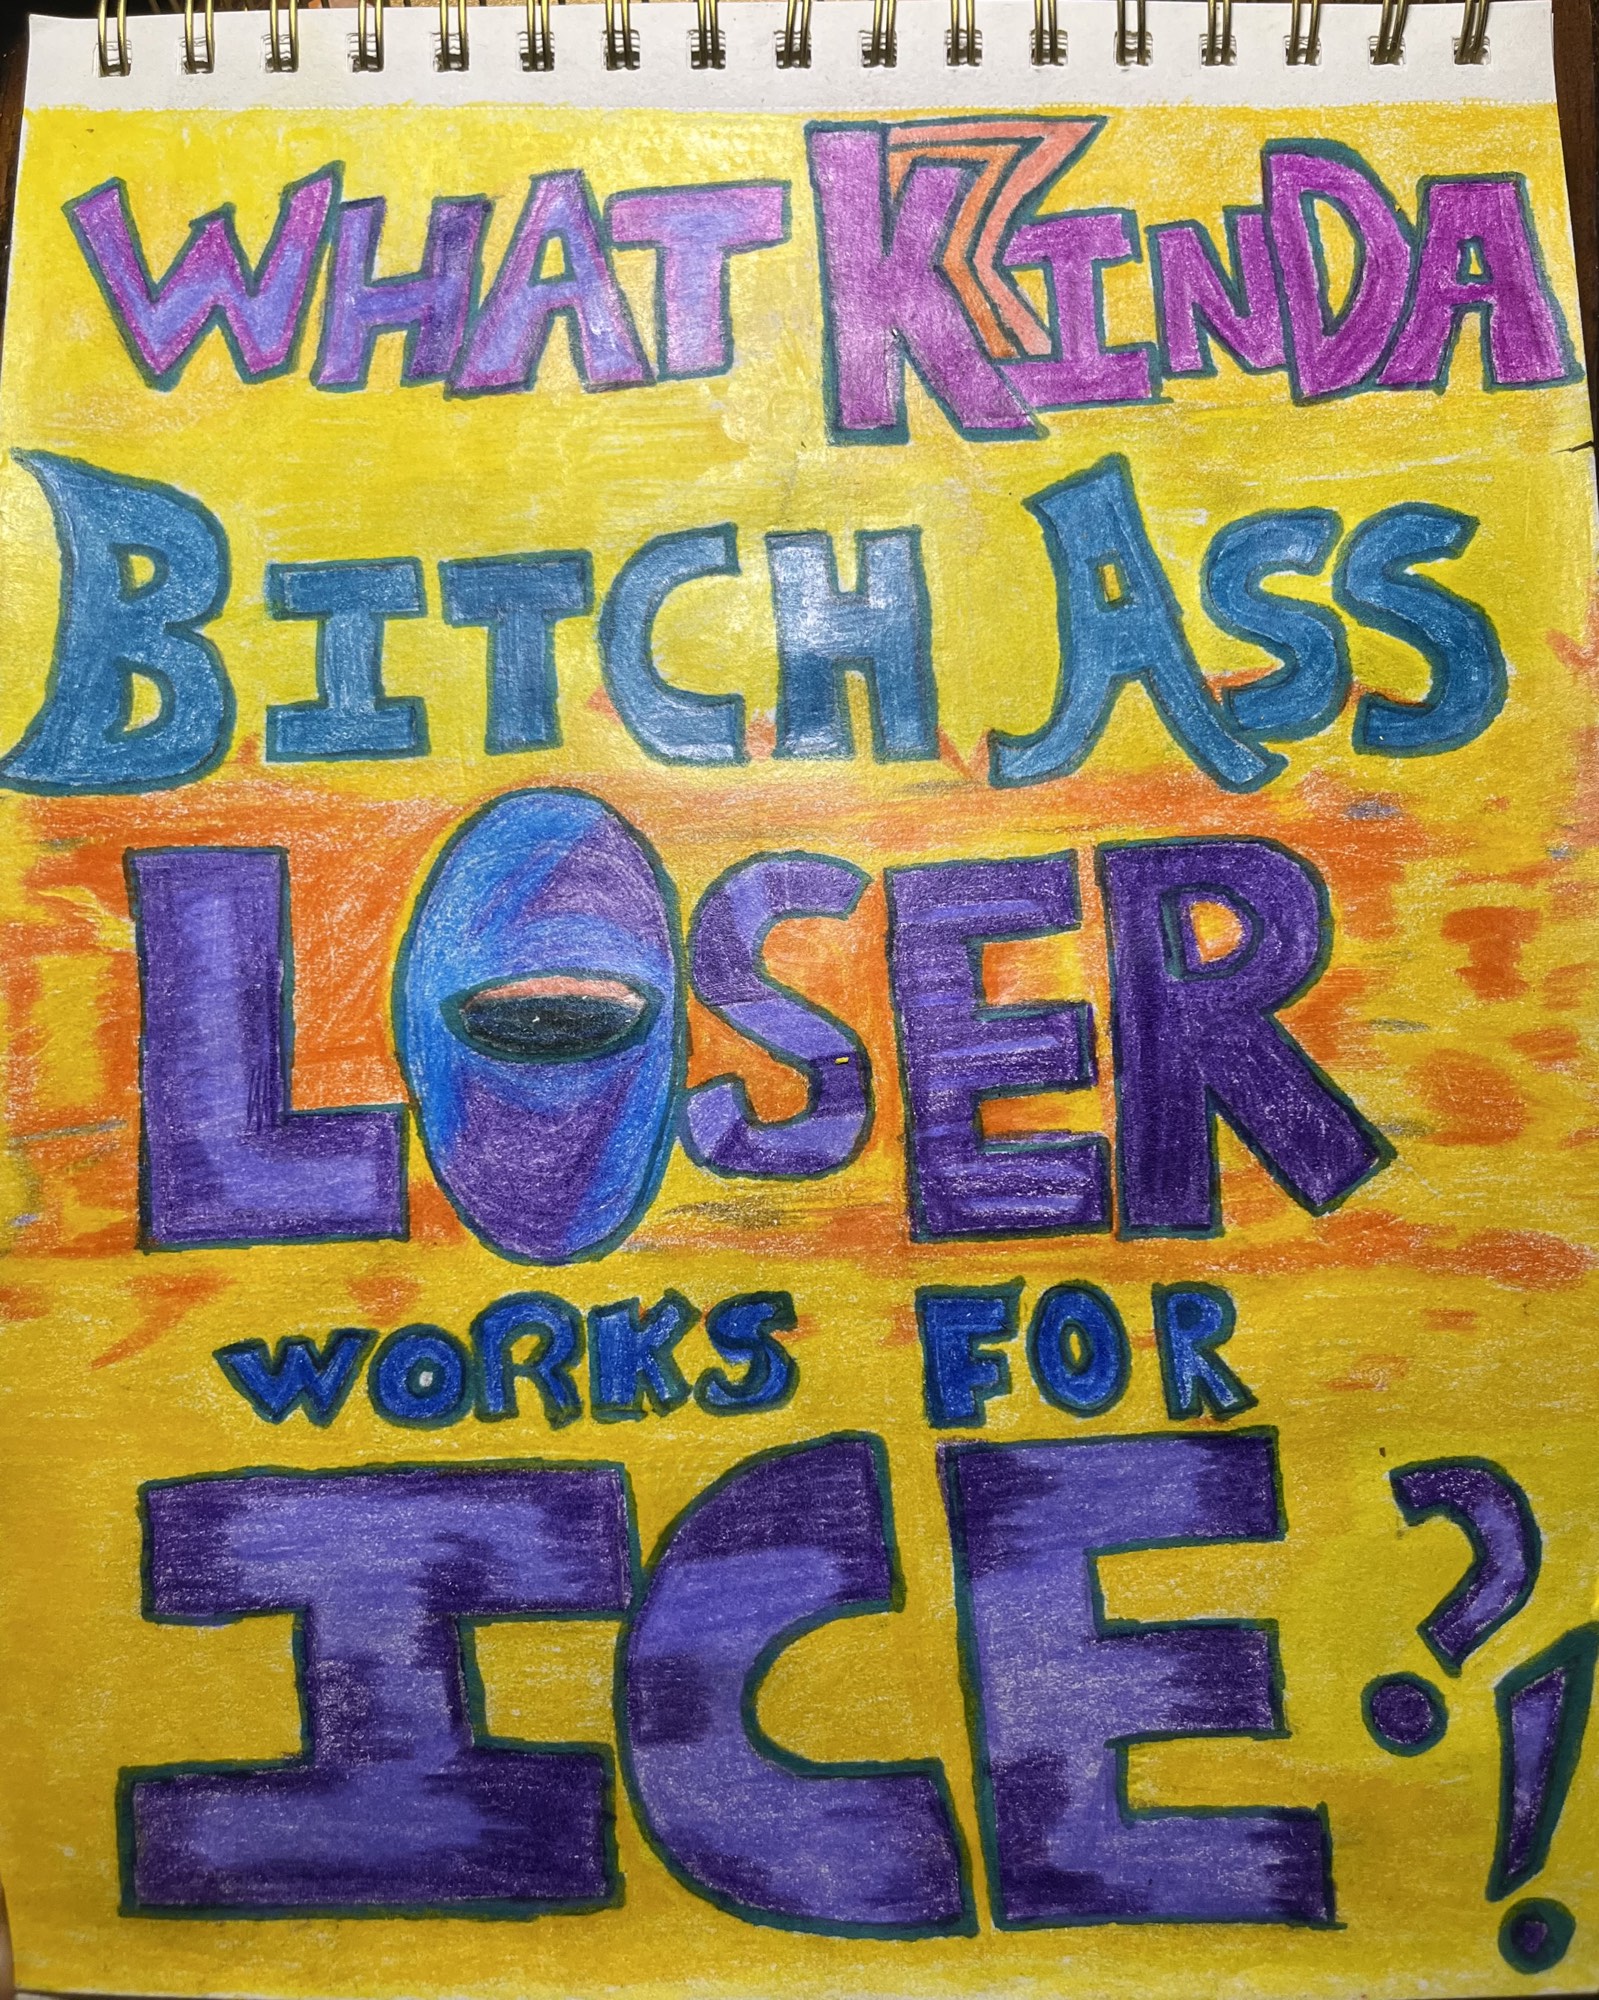 WHAT KINDA
BITCH ASS
LOSER
WORKS FOR
ICE?!